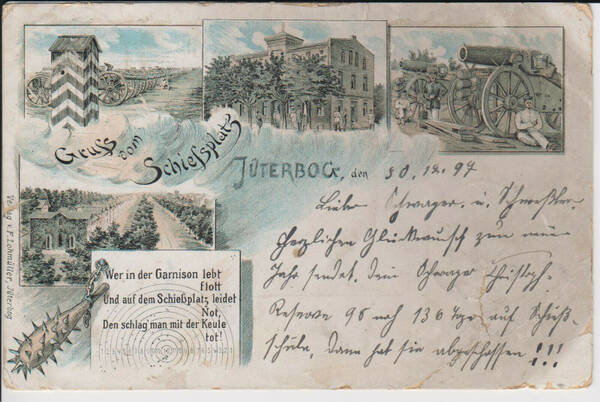 Gruss vom Schießplatz
JÜTERBOG, den 30.12.97
Liebe Schwager, u. Schwester,
Herzlichen Glückwunsch zum neuen
Jahr sendet, Dein Schwager Christoph.
Reserve 98 noch 136 Tge auf Schieß-
schule, Dann hat sie abgeschossen !!!
Wer in der Garnison lebt
flott
Und auf dem Schießplatz leidet
Not,
Den schlag man mit der Keule
tot!
Verlag v. F. Lohmüller, Jüterbog